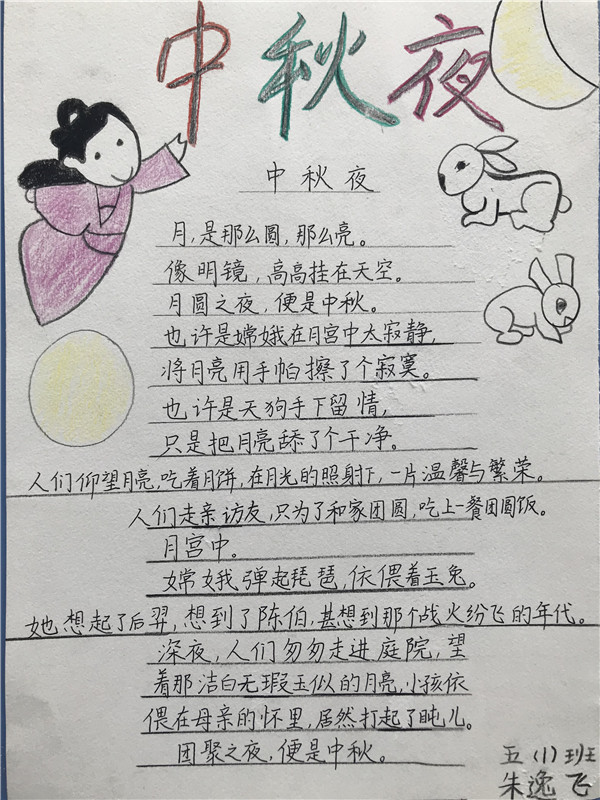 中秋夜
中秋夜
月,是那么圆,那么亮。
像明镜,高高挂在天空。
月圆之夜,便是中秋。
也许是嫦娥在月宫中太寂静,
将月亮用手帕擦了个寂寞。
也许是天狗手下留情,
只是把月亮舔了个干净。
人们仰望月亮,吃着月饼,在月光的照射下,一片温馨与繁荣。
人们走亲访友,只为了和家团圆,吃上一餐团圆饭。
月宫中。
嫦娥弹起琵琶,依偎着玉兔。
她想起了后羿,想到了陈伯,甚想到那个战火纷飞的年代。
深夜,人们匆匆走进庭院,望
着那洁白无瑕玉似的月亮,小孩依
偎在母亲的怀里,居然打起了盹儿。
团聚之夜,便是中秋。
五(1)班
朱逸飞